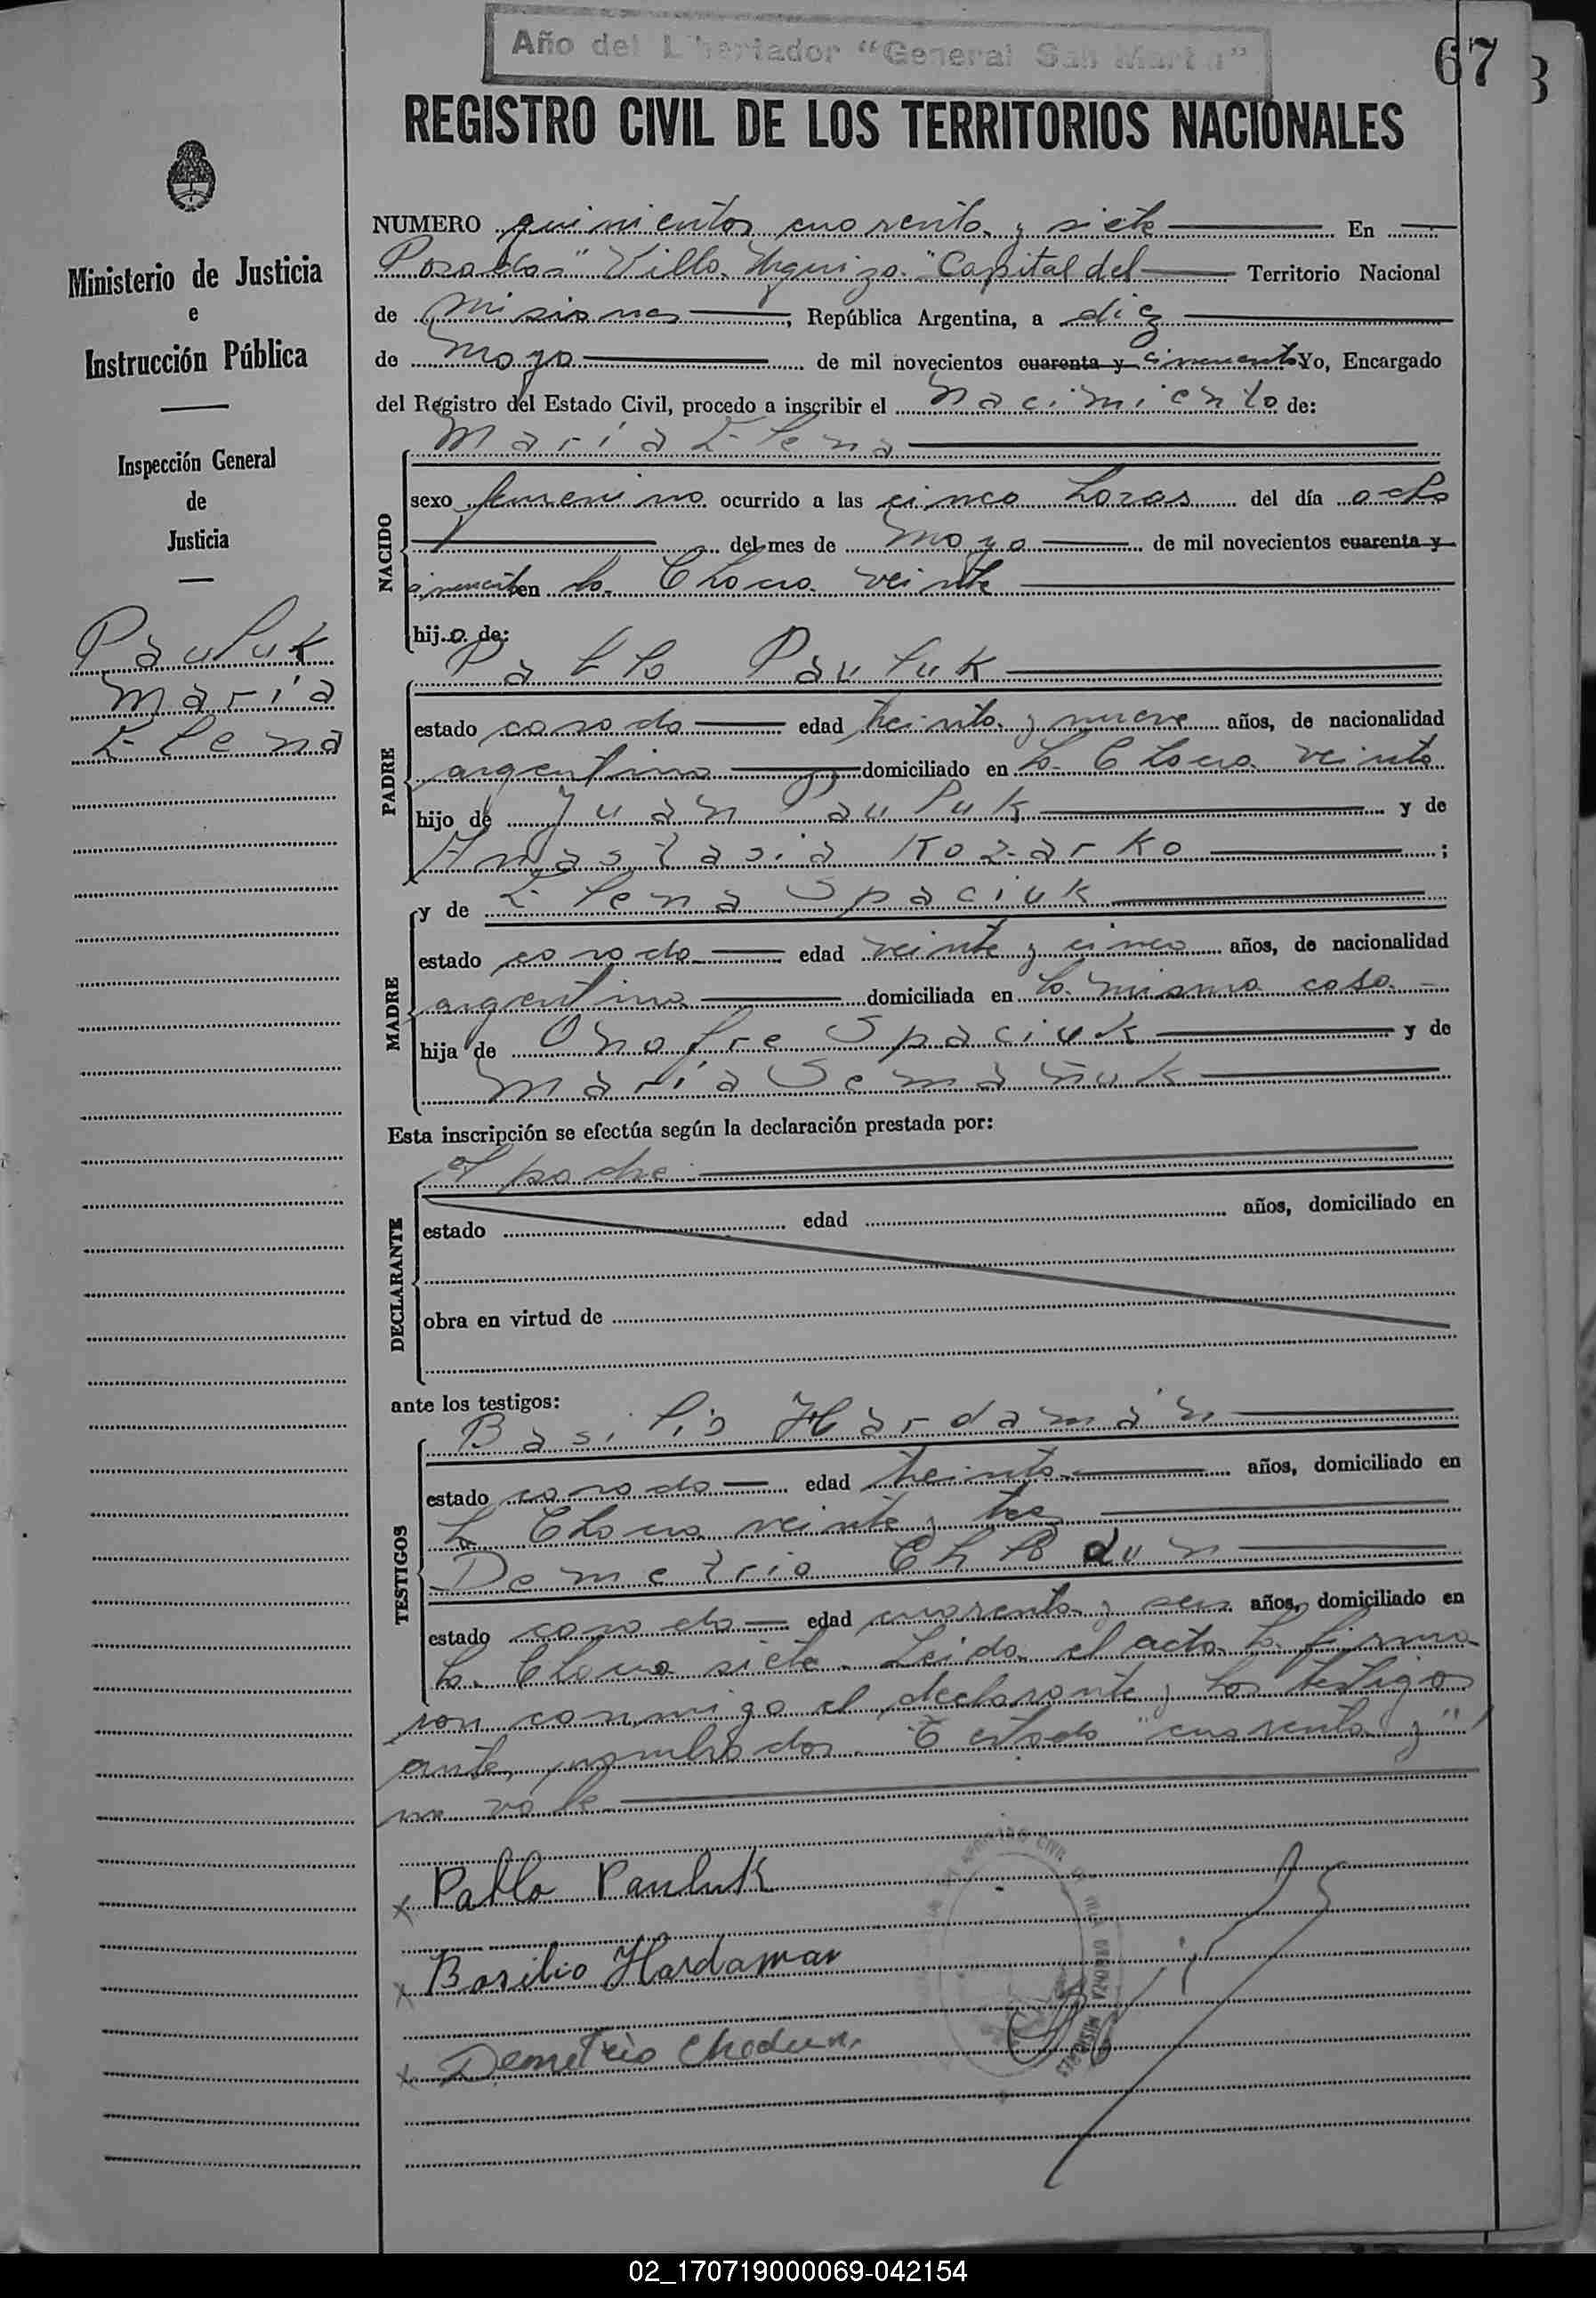 Año del Libertador "General San Martín"
67
REGISTRO CIVIL DE LOS TERRITORIOS NACIONALES
Ministerio de Justicia
e
Instrucción Pública
Inspección General
de
Justicia
Pauluk
María
Elena
NUMERO quinientos cuarenta y siete En
Posadas "Villa Urquiza" Capital del Territorio Nacional
de Misiones, República Argentina, a diez
de Mayo de mil novecientos cuarenta y cincuenta Yo, Encargado
del Registro del Estado Civil, procedo a inscribir el nacimiento de:
María Elena
NACIDO
sexo femenino ocurrido a las cinco horas del día ocho
del mes de Mayo de mil novecientos cuarenta y
cincuenta en la Chacra veinte
hija de:
Pablo Pauluk
PADRE
estado casado edad treinta y nueve años, de nacionalidad
argentino domiciliado en la Chacra veinte
hijo de Juan Pauluk y de
Anastasia Kozarko;
MADRE
y de Elena Spaciuk
estado casada edad veinte y cinco años, de nacionalidad
argentina domiciliada en la misma casa
hija de Onofre Spaciuk y de
María Semañuk
Esta inscripción se efectúa según la declaración prestada por:
el padre
DECLARANTE
estado edad años, domiciliado en
obra en virtud de
ante los testigos:
Basilio Hardamán
TESTIGOS
estado casado edad treinta años, domiciliado en
la Chacra veinte y tres
Demetrio Chodun
estado casado edad cuarenta y seis años, domiciliado en
la Chacra siete. Leida el acta la firma
ron conmigo el declarante y los testigos
antes nombrados. Testado "cuarenta y"
no vale
x Pablo Pauluk
x Basilio Hardaman
x Demetrio Chodun
02_170719000069-042154